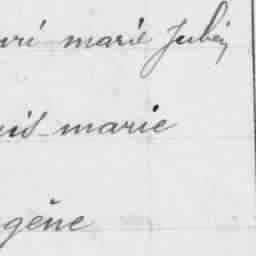 uri marie Julien
uis marie
gène